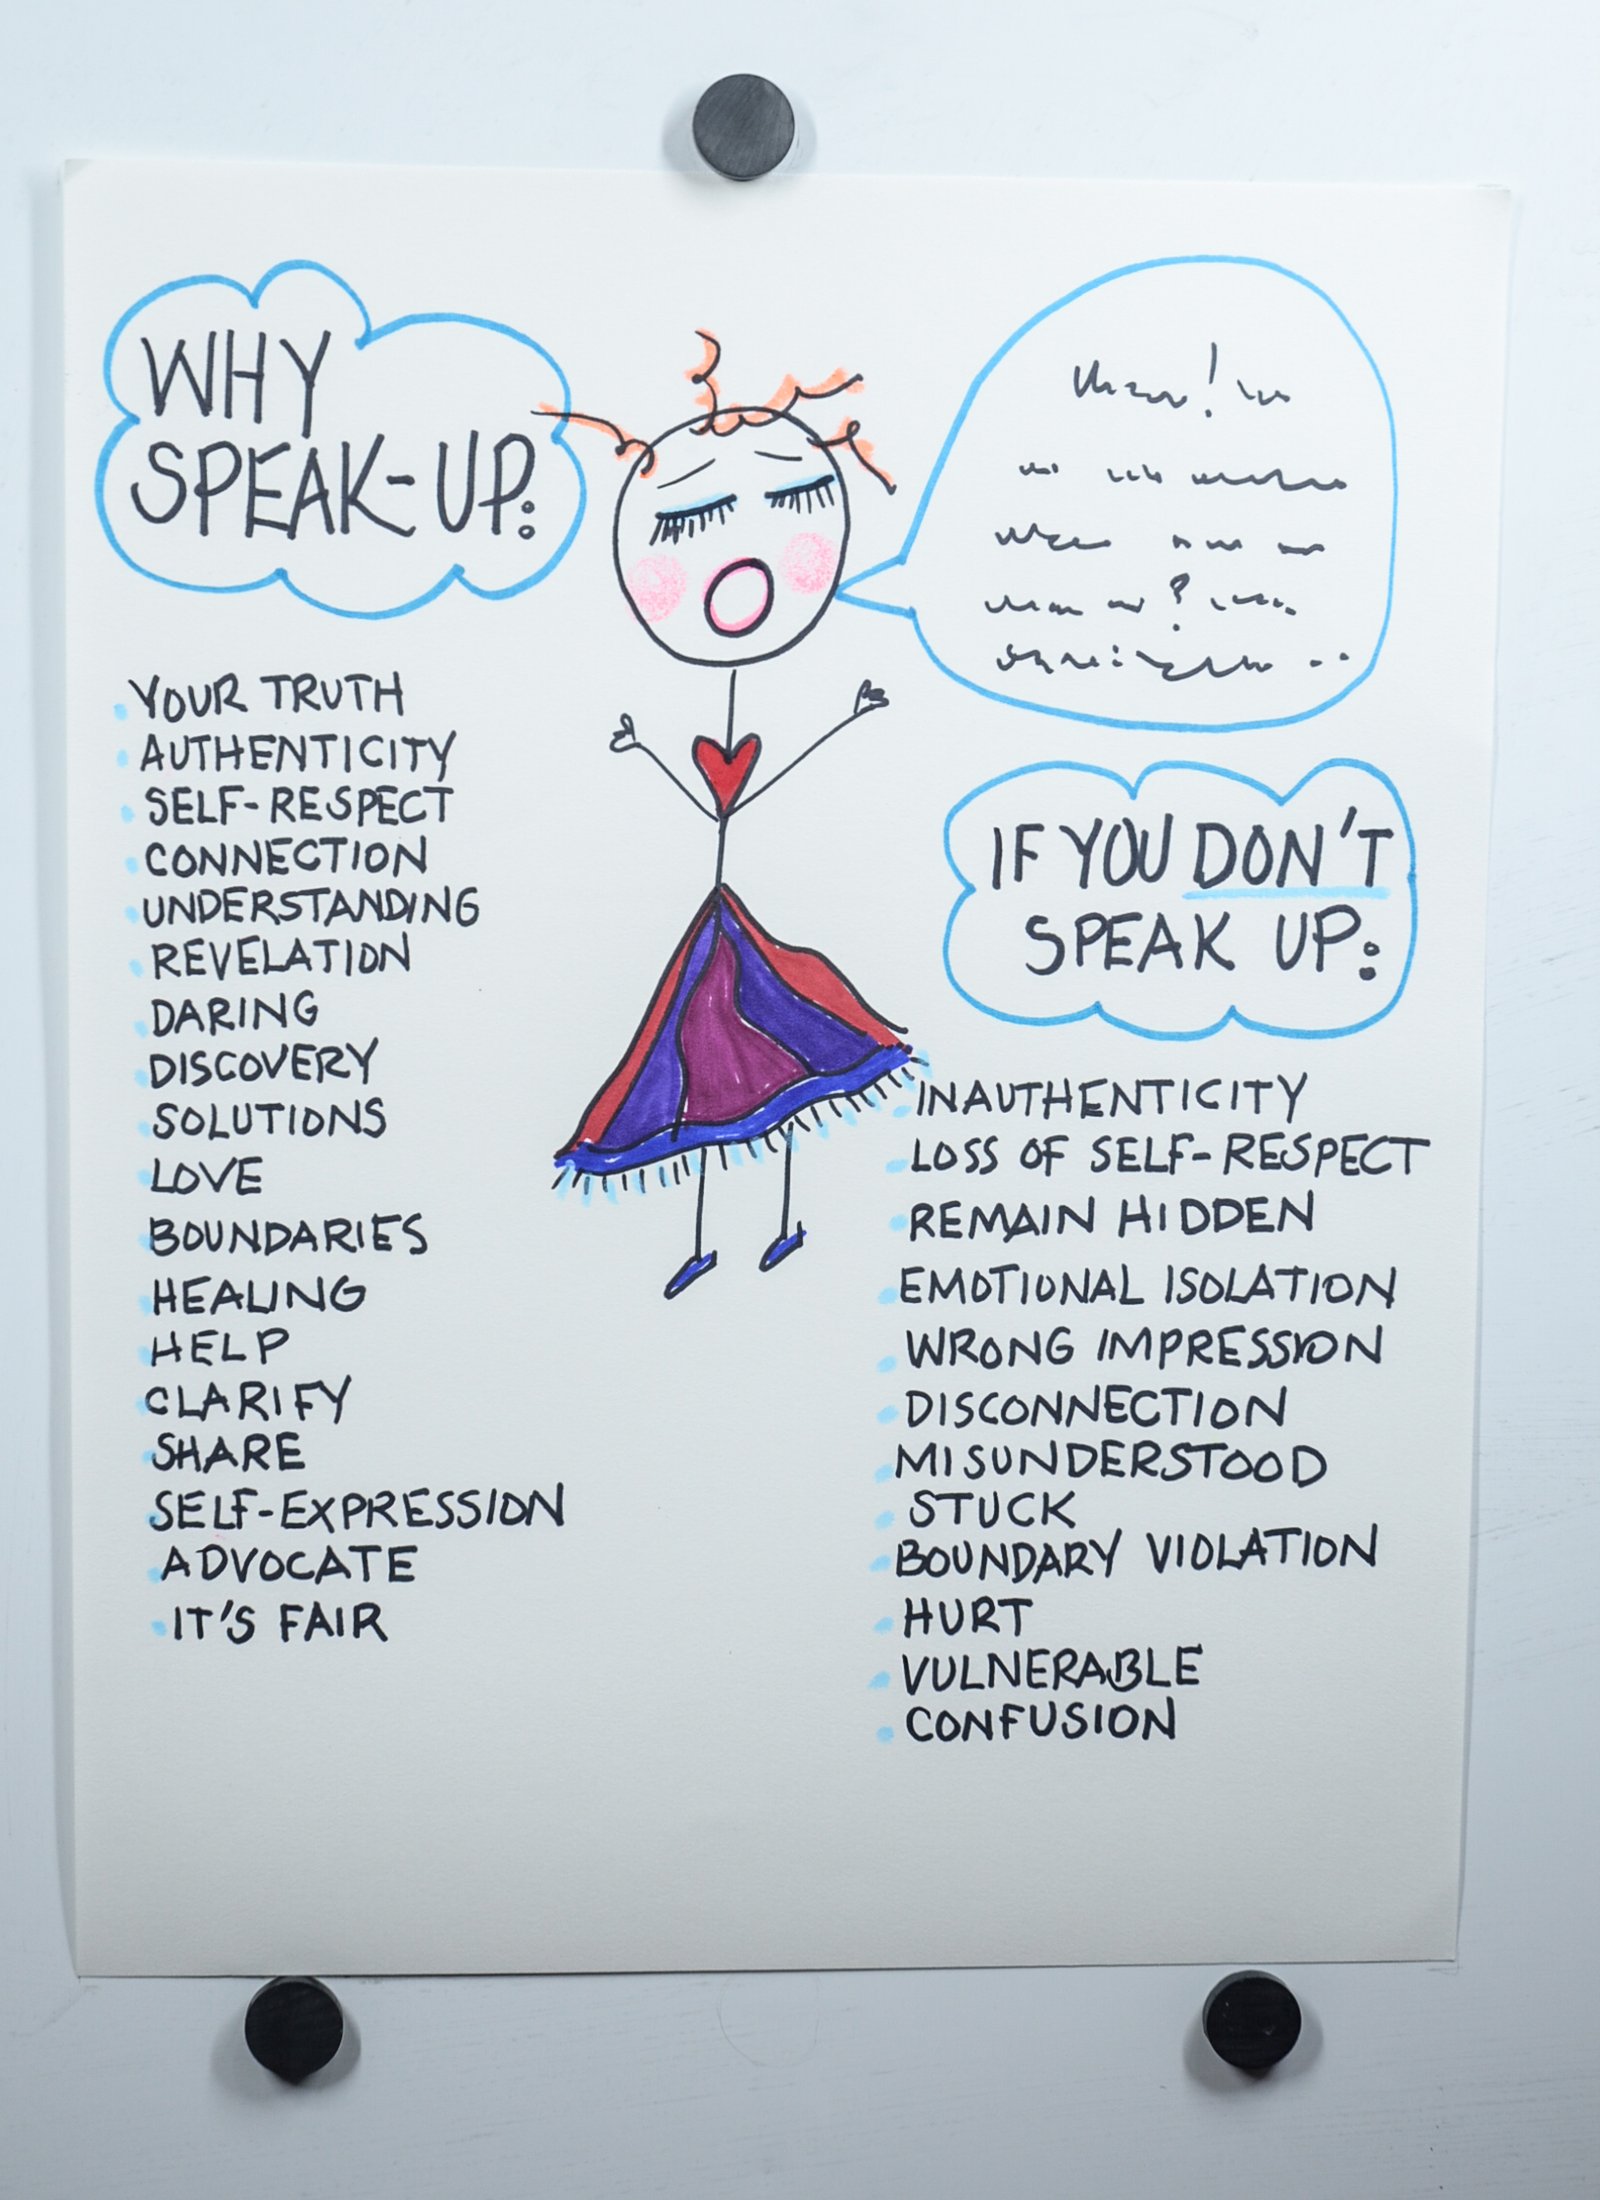 WHY
SPEAK-UP:
YOUR TRUTH
AUTHENTICITY
SELF-RESPECT
CONNECTION
UNDERSTANDING
REVELATION
DARING
DISCOVERY
SOLUTIONS
LOVE
BOUNDARIES
HEALING
HELP
CLARIFY
SHARE
SELF-EXPRESSION
ADVOCATE
IT'S FAIR
IF YOU DON'T
SPEAK UP:
INAUTHENTICITY
LOSS OF SELF-RESPECT
REMAIN HIDDEN
EMOTIONAL ISOLATION
WRONG IMPRESSION
DISCONNECTION
MISUNDERSTOOD
STUCK
BOUNDARY VIOLATION
HURT
VULNERABLE
CONFUSION